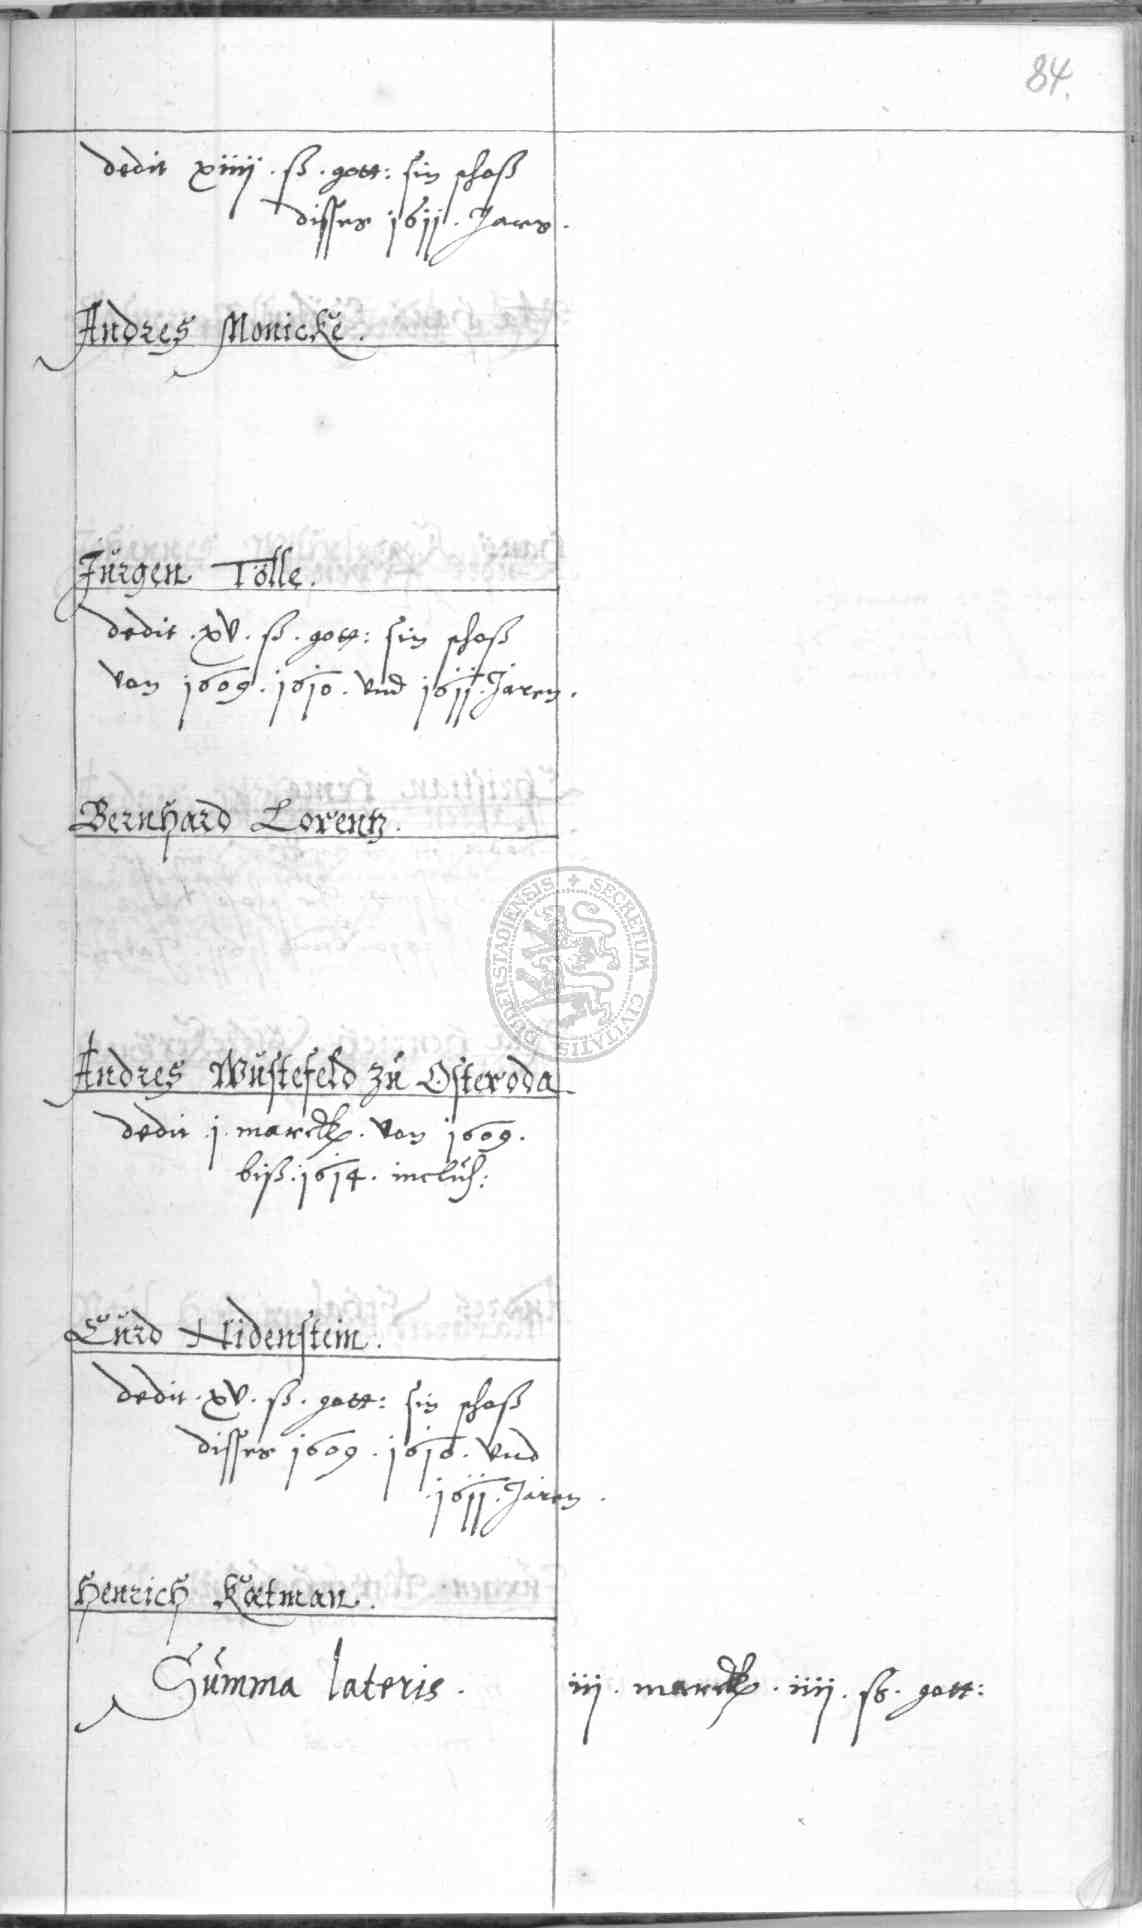 84.
dedit xiiij. ß. gott: sin schoß
disses 1611. Jars.
Andres Monicke.
Jürgen Tölle.
dedit. xv. ß. gott: sin schoß
von 1609. 1610. vnd 1611. Jaren.
Bernhard Lorentz.
SECRETUM CIVITATIS DUDERSTADIENSIS
Andres Wüstefeld zü Osteroda
dedit. j. marck. von 1609.
biß. 1614. inclüs:
Cürd Nidenstein.
dedit. xv. ß. gott: sin schoß
disses 1609. 1610. vnd
1611. Jaren.
Henrich Kötman.
Sümma lateris. iij. marck. iiij. ß. gott: